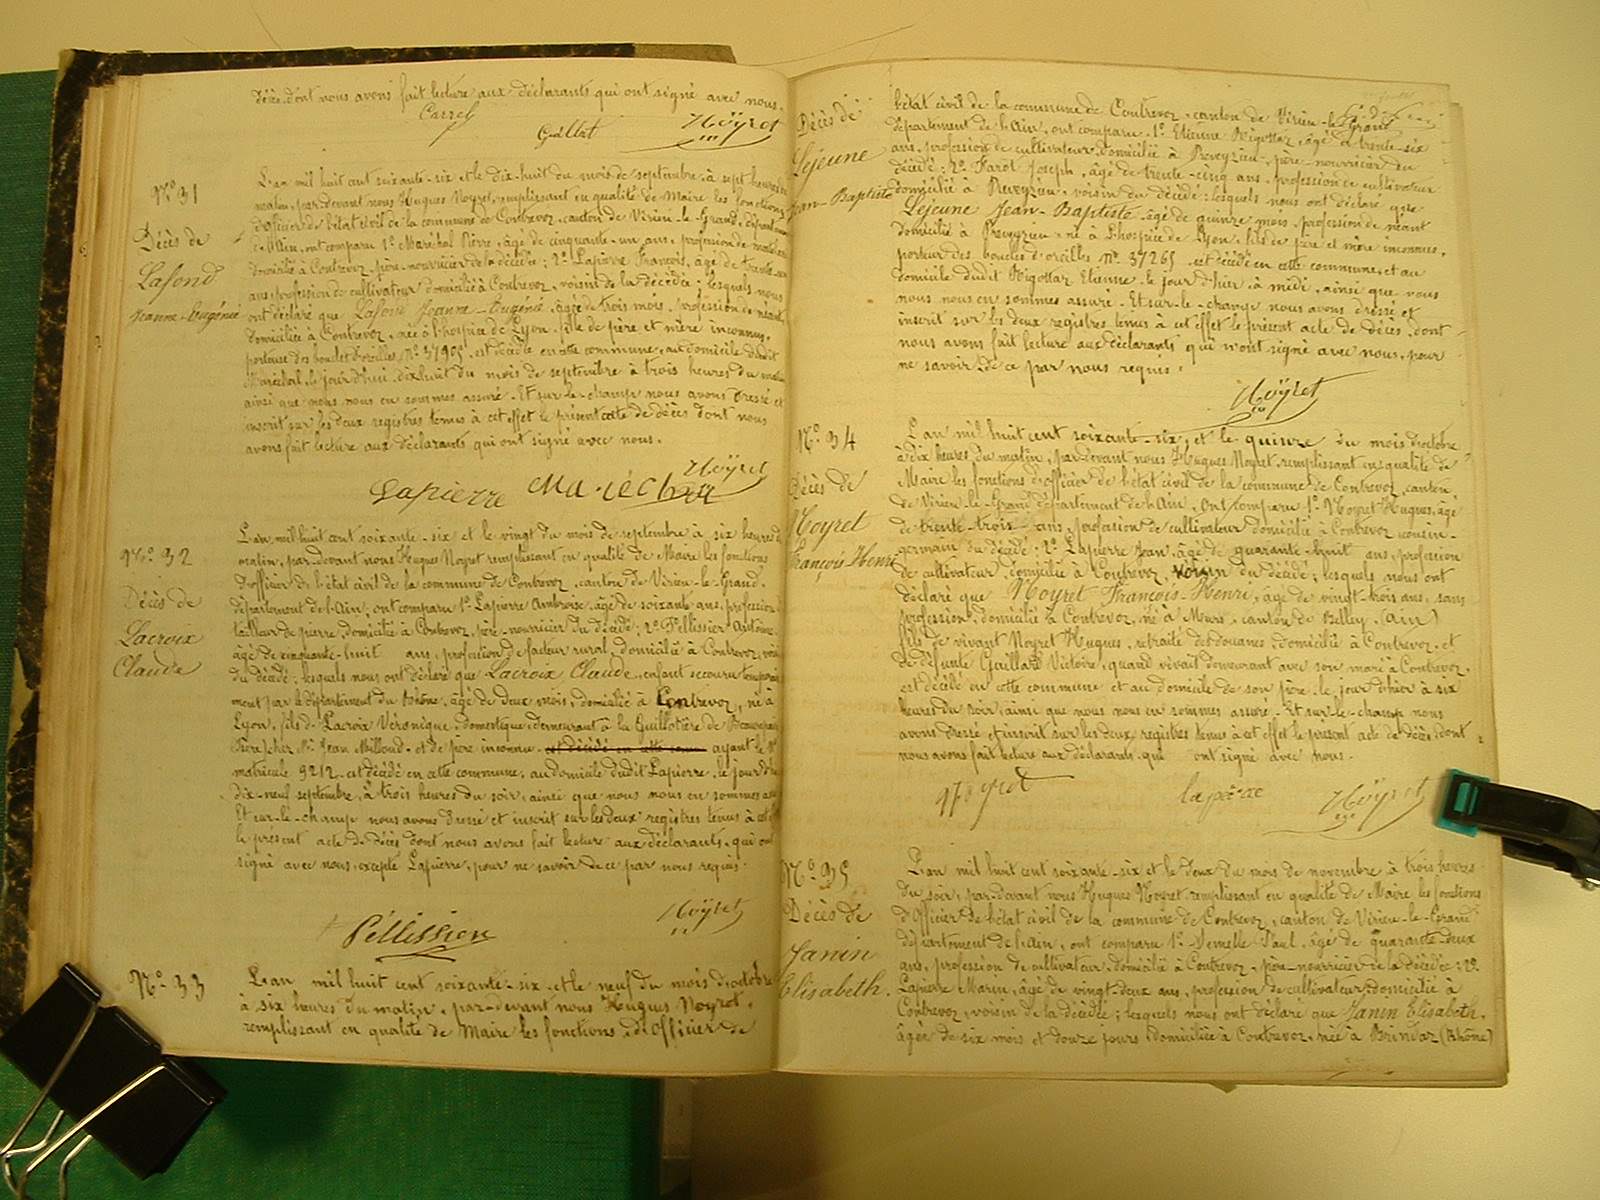 décès, dont nous avons fait lecture aux déclarants qui ont signé avec nous.
Carrel
Guillot Noÿret
N° 31
Décès de
Lafond
Jeanne-Eugénie
L'an mil huit cent soixante-six et le dix-huit du mois de septembre, à sept heures du
matin, par devant nous Hugues Noyret, remplissant en qualité de Maire les fonctions
d'officier de l'état civil de la commune de Contrevoz, canton de Virieu-le-Grand, département
de l'Ain, ont comparu 1° Maréchal Pierre, âgé de cinquante-un ans, profession de
domicilié à Contrevoz, père-nourricier de la décédée; 2° Lapierre François, âgé de trente-
ans, profession de cultivateur domicilié à Contrevoz, voisin de la décédée; lesquels nous
ont déclaré que Lafond Jeanne-Eugénie, âgée de trois mois, profession de néant,
domiciliée à Contrevoz, née à l'hospice de Lyon, fille de père et mère inconnus,
porteuse des boucles d'oreilles, N° 37905, est décédée en cette commune, au domicile dudit
Maréchal, le jour d'hui, dixhuit du mois de septembre à trois heures du matin
ainsi que nous nous en sommes assuré. Et sur-le-champ nous avons dressé et
inscrit sur les deux registres tenus à cet effet le présent acte de décès dont nous
avons fait lecture aux déclarants qui ont signé avec nous.
Noÿret
Lapierre Maréchal
N° 32
Décès de
Lacroix
Claude
L'an mil huit cent soixante-six et le vingt du mois de septembre à six heures du
matin, par-devant nous Hugues Noyret remplissant en qualité de Maire les fonctions
d'officier de l'état civil de la commune de Contrevoz, canton de Virieu-le-Grand,
département de l'Ain, ont comparu 1° Lapierre Ambroise, âgé de soixante ans, profession
tailleur de pierre, domicilié à Contrevoz, père-nourricier du décédé; 2° Péllissier Antoine,
âgé de cinquante-huit ans, profession de facteur rural, domicilié à Contrevoz,
du décédé; lesquels nous ont déclaré que Lacroix Claude, enfant secouru temporaire-
ment par le département du Rhône, âgé de deux mois, domicilié à Contrevoz, né à
Lyon, fils de Lacroix Véronique, domestique, demeurant à la Guillotière
chez Mr Jean Milloud, et de père inconnu, est décédé en cette commune ayant le N°
matricule 9212, est décédé en cette commune, au domicile dudit Lapierre, le jour d'hier
dix-neuf septembre, à trois heures du soir, ainsi que nous nous en sommes assuré
Et sur-le-champ nous avons dressé et inscrit sur les deux registres tenus à cet effet
le présent acte de décès dont nous avons fait lecture aux déclarants, qui ont
signé avec nous, excepté Lapierre, pour ne savoir de ce par nous requis.
Noÿret
Péllissier
N° 33
L'an mil huit cent soixante-six et le neuf du mois d'octobre
à six heures du matin, par-devant nous Hugues Noyret,
remplissant en qualité de Maire les fonctions d'officier de
Décès de
Lejeune
Jean-Baptiste
l'état civil de la commune de Contrevoz, canton de Virieu-le-Grand
département de l'Ain, ont comparu 1° Etienne Rigottaz, âgé de trente-six
ans, profession de cultivateur, domicilié à Preveyzieu, père-nourricier du
décédé; 2° Farot Joseph, âgé de trente-cinq ans, profession de cultivateur
domicilié à Preveyzieu, voisin du décédé; lesquels nous ont déclaré que
Lejeune Jean-Baptiste, âgé de quinze mois, profession de néant
domicilié à Preveyzieu, né à l'hospice de Lyon, fils de père et mère inconnus,
porteur des boucles d'oreilles N° 37265, est décédé en cette commune, et au
domicile dudit Rigottaz Etienne, le jour d'hier, à midi, ainsi que nous
nous nous en sommes assuré. Et sur-le-champ nous avons dressé et
inscrit sur les deux registres tenus à cet effet le présent acte de décès, dont
nous avons fait lecture aux déclarants qui n'ont signé avec nous, pour
ne savoir de ce par nous requis.
Noÿret
N° 34
Décès de
Noyret
François-Henri
L'an mil huit cent soixante-six, et le quinze du mois d'octobre
à dix heures du matin, par devant nous Hugues Noyret, remplissant en qualité de
Maire les fonctions d'officier de l'état civil de la commune de Contrevoz, canton
de Virieu-le-Grand département de l'Ain, ont comparu 1° Noyret Hugues, âgé
de trente-trois ans, profession de cultivateur domicilié à Contrevoz cousin-
germain du décédé; 2° Lapierre Jean, âgé de quarante-huit ans, profession
de cultivateur, domicilié à Contrevoz, voisin du décédé; lesquels nous ont
déclaré que Noyret François-Henri, âgé de vingt-trois ans, sans
profession, domicilié à Contrevoz, né à Murs, canton de Belley, (Ain)
fils de vivant Noyret Hugues, retraité des douanes, domicilié à Contrevoz, et
de défunte Gaillard Victoire, quand vivait demeurant avec son mari à Contrevoz,
est décédé en cette commune et au domicile de son père, le jour d'hier à six
heures du soir, ainsi que nous nous en sommes assuré. Et sur-le-champ nous
avons dressé et inscrit sur les deux registres tenus à cet effet le présent acte de décès, dont
nous avons fait lecture aux déclarants, qui ont signé avec nous.
Noyret lapierre Noÿret
N° 35
Décès de
Janin
Elisabeth.
L'an mil huit cent soixante-six et le deux du mois de novembre à trois heures
du soir, par-devant nous Hugues Noyret, remplissant en qualité de Maire les fonctions
d'Officier de l'état civil de la commune de Contrevoz, canton de Virieu-le-Grand
département de l'Ain, ont comparu 1° Demelle Paul, âgé de quarante-deux
ans, profession de cultivateur, domicilié à Contrevoz, père-nourricier de la décédée; 2°
Lapierre Marin, âgé de vingt-deux ans, profession de cultivateur, domicilié à
Contrevoz, voisin de la décédée; lesquels nous ont déclaré que Janin Elisabeth,
âgée de six mois et douze jours, domiciliée à Contrevoz, née à Brindaz (Rhône)